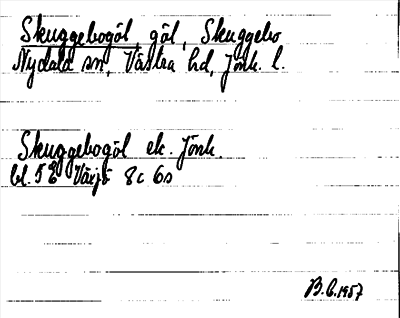 Skuggebogöl, göl, Skuggebo
Nydala sn, Västra hd, Jönk. l.
Skuggebogöl ek. Jönk.
bl. 5E Växjö 8c 60
B.C. 1957